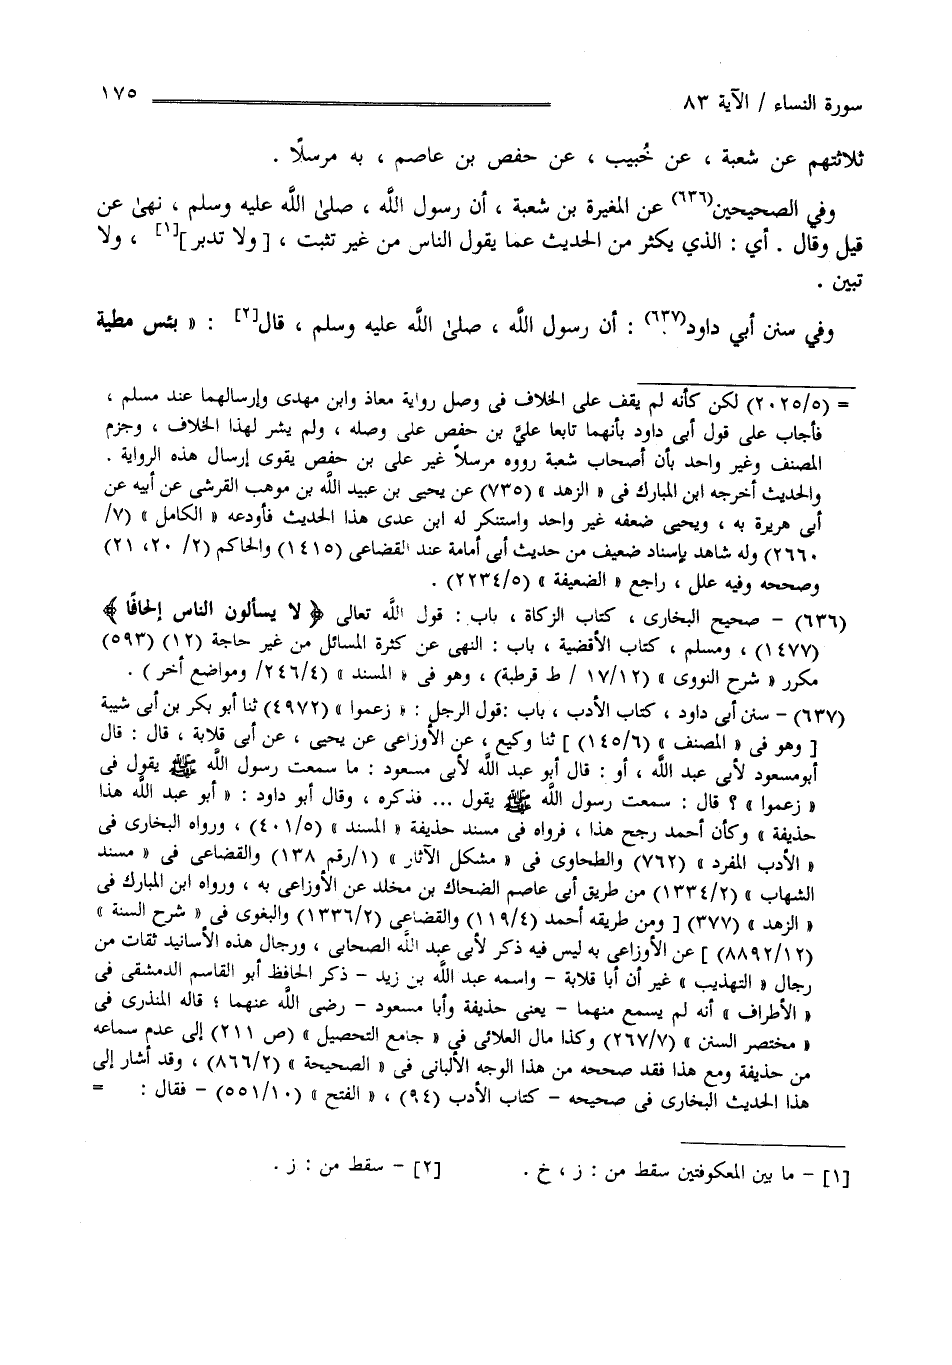 سورة النساء / الآية ٨٣
١٧٥
ثلاثتهم عن شعبة ، عن خُبيب ، عن حفص بن عاصم ، به مرسلًا .
وفي الصحيحين(٦٣٦) عن المغيرة بن شعبة ، أن رسول اللَّه ، صلىٰ اللَّه عليه وسلم ، نهىٰ عن
قيل وقال . أي : الذي يكثر من الحديث عما يقول الناس من غير تثبت ، [ ولا تدبر ][١] ، ولا
تبين .
وفي سنن أبي داود(٦٣٧) : أن رسول اللَّه ، صلىٰ اللَّه عليه وسلم ، قال[٢] : « بئس مطية
= (٢٠٢٥/٥) لكن كأنه لم يقف على الخلاف فى وصل رواية معاذ وابن مهدى وإرسالهما عند مسلم ،
فأجاب على قول أبى داود بأنهما تابعا عليَّ بن حفص على وصله ، ولم يشر لهذا الخلاف ، وجزم
المصنف وغير واحد بأن أصحاب شعبة رووه مرسلاً غير على بن حفص يقوى إرسال هذه الرواية .
والحديث أخرجه ابن المبارك فى « الزهد » (٧٣٥) عن يحيى بن عبيد اللَّه بن موهب القرشى عن أبيه عن
أبى هريرة به ، ويحيى ضعفه غير واحد واستنكر له ابن عدى هذا الحديث فأودعه « الكامل » (٧/
٢٦٦٠) وله شاهد بإسناد ضعيف من حديث أبى أمامة عند القضاعى (١٤١٥) والحاكم (٢/ ٢٠، ٢١)
وصححه وفيه علل ، راجع « الضعيفة » (٢٢٣٤/٥) .
(٦٣٦) - صحيح البخارى ، كتاب الزكاة ، باب : قول اللَّه تعالى ﴿ لا يسألون الناس إلحافًا ﴾
(١٤٧٧) ، ومسلم ، كتاب الأقضية ، باب : النهى عن كثرة المسائل من غير حاجة (١٢) (٥٩٣)
مكرر « شرح النووى » (١٧/١٢ / ط قرطبة) ، وهو فى « المسند » (٢٤٦/٤/ ومواضع أخر ) .
(٦٣٧) - سنن أبى داود ، كتاب الأدب ، باب :قول الرجل : « زعموا » (٤٩٧٢) ثنا أبو بكر بن أبى شيبة
[ وهو فى « المصنف » (١٤٥/٦) ] ثنا وكيع ، عن الأوزاعى عن يحيى ، عن أبى قلابة ، قال : قال
أبومسعود لأبى عبد اللَّه ، أو : قال أبو عبد اللَّه لأبى مسعود : ما سمعت رسول اللَّه ﷺ يقول فى
« زعموا » ؟ قال : سمعت رسول اللَّه ﷺ يقول ... فذكره ، وقال أبو داود : « أبو عبد اللَّه هذا
حذيفة » وكأن أحمد رجح هذا ، فرواه فى مسند حذيفة « المسند » (٤٠١/٥) ، ورواه البخارى فى
« الأدب المفرد » (٧٦٢) والطحاوى فى « مشكل الآثار » (١/رقم ١٣٨) والقضاعى فى « مسند
الشهاب » (١٣٣٤/٢) من طريق أبى عاصم الضحاك بن مخلد عن الأوزاعى به ، ورواه ابن المبارك فى
« الزهد » (٣٧٧) [ ومن طريقه أحمد (١١٩/٤) والقضاعى (١٣٣٦/٢) والبغوى فى « شرح السنة »
(٨٨٩٢/١٢) ] عن الأوزاعى به ليس فيه ذكر لأبى عبد اللَّه الصحابى ، ورجال هذه الأسانيد ثقات من
رجال « التهذيب » غير أن أبا قلابة - واسمه عبد اللَّه بن زيد - ذكر الحافظ أبو القاسم الدمشقى فى
« الأطراف » أنه لم يسمع منهما - يعنى حذيفة وأبا مسعود - رضى اللَّه عنهما ؛ قاله المنذرى فى
« مختصر السنن » (٢٦٧/٧) وكذا مال العلائى فى « جامع التحصيل » (ص ٢١١) إلى عدم سماعه
من حذيفة ومع هذا فقد صححه من هذا الوجه الألبانى فى « الصحيحة » (٨٦٦/٢) ، وقد أشار إلى
هذا الحديث البخارى فى صحيحه - كتاب الأدب (٩٤) ، « الفتح » (٥٥١/١٠) - فقال : =
[١] - ما بين المعكوفتين سقط من : ز ، خ .
[٢] - سقط من : ز .